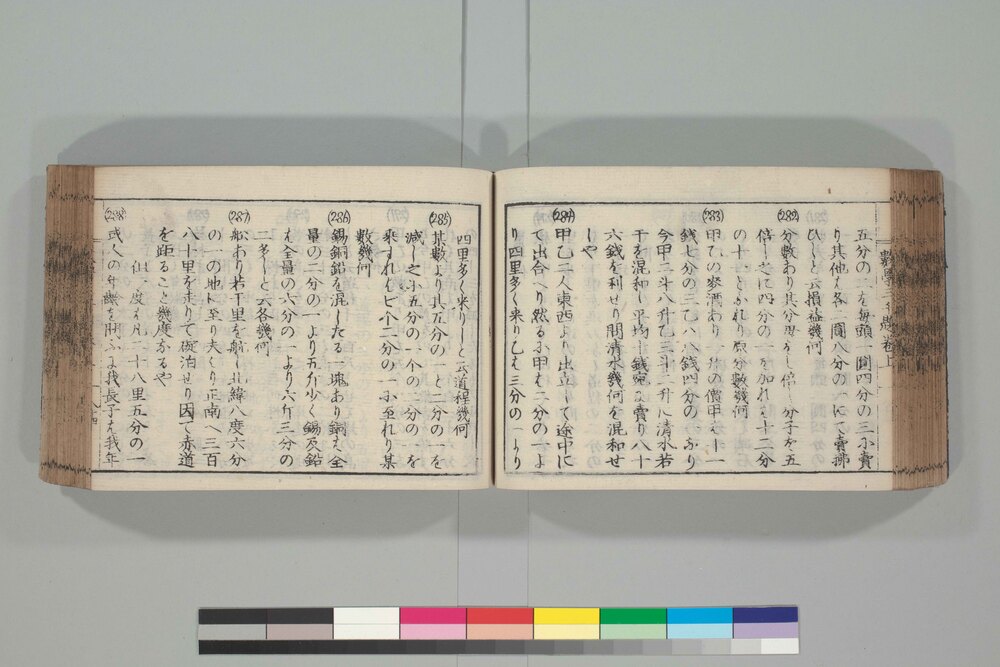 五分の二を毎頭一圓四分の三に賣
り其他を各二圓八分の一にて賣拂
ひしと云損益幾何
(282)
分數あり其分母を二倍し分子を五
倍し之に四分の一を加れは十二分
の十一とかれり原分數幾何
(283)
甲乙の麥酒あり一升の價甲は十一
錢七分の三乙は八錢四分の三なり
今甲二斗八升乙三斗二升に清水若
干を混和し平均十錢宛に賣り八十
六錢を利せり問清水幾何を混和せ
しや
(284)
甲乙二人東西より出立して途中に
て出合へり然るに甲は二分の一より
四里多く来り乙は三分の一より
四里多く来りしと云道程幾何
(285)
某數より其五分の一と二分の一を
減し之に五分の一个の二分の一を
乗すれは七个二分の一に至れり某
數幾何
(286)
錫銅鉛を混したる一塊あり銅は全
量の二分の一より五斤少く錫及鉛
は全量の六分の一より六斤三分の
二多しと云各幾何
(287)
船あり若干里を航し北緯八度六分
の一の地に至り夫より正南へ三百
八十里を走りて碇泊せり因て赤道
を距ること幾度なるや
但一度は凡二十八里五分の一
(288)
或人の年齢を問ふに我長子は我年